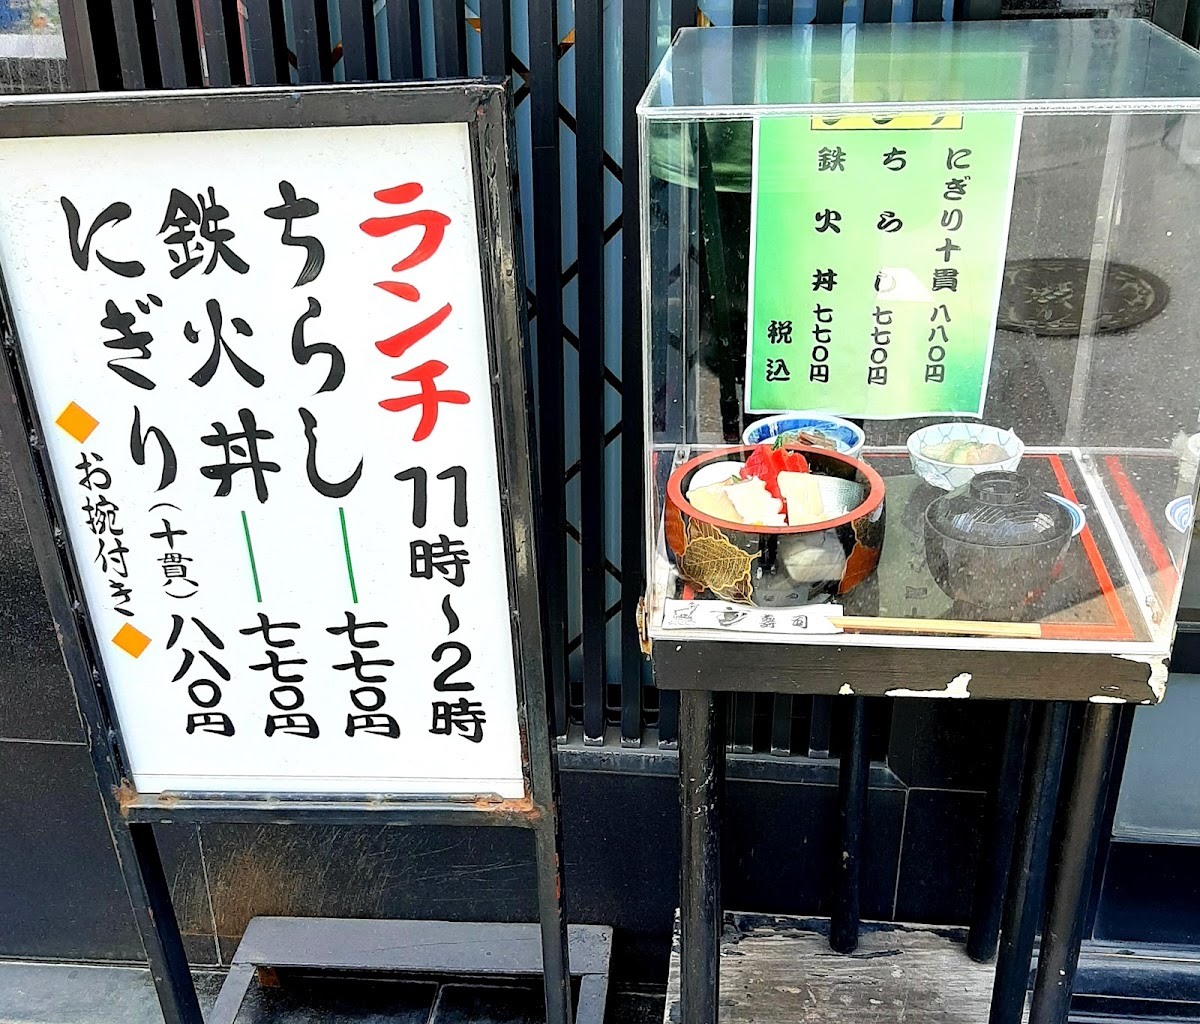 ランチ 11時〜2時
ちらし 七七〇円
鉄火丼 七七〇円
にぎり(十貫) 八八〇円
◆お椀付き◆
にぎり十貫 八八〇円
ちらし 七七〇円
鉄火丼 七七〇円
税込
寿司